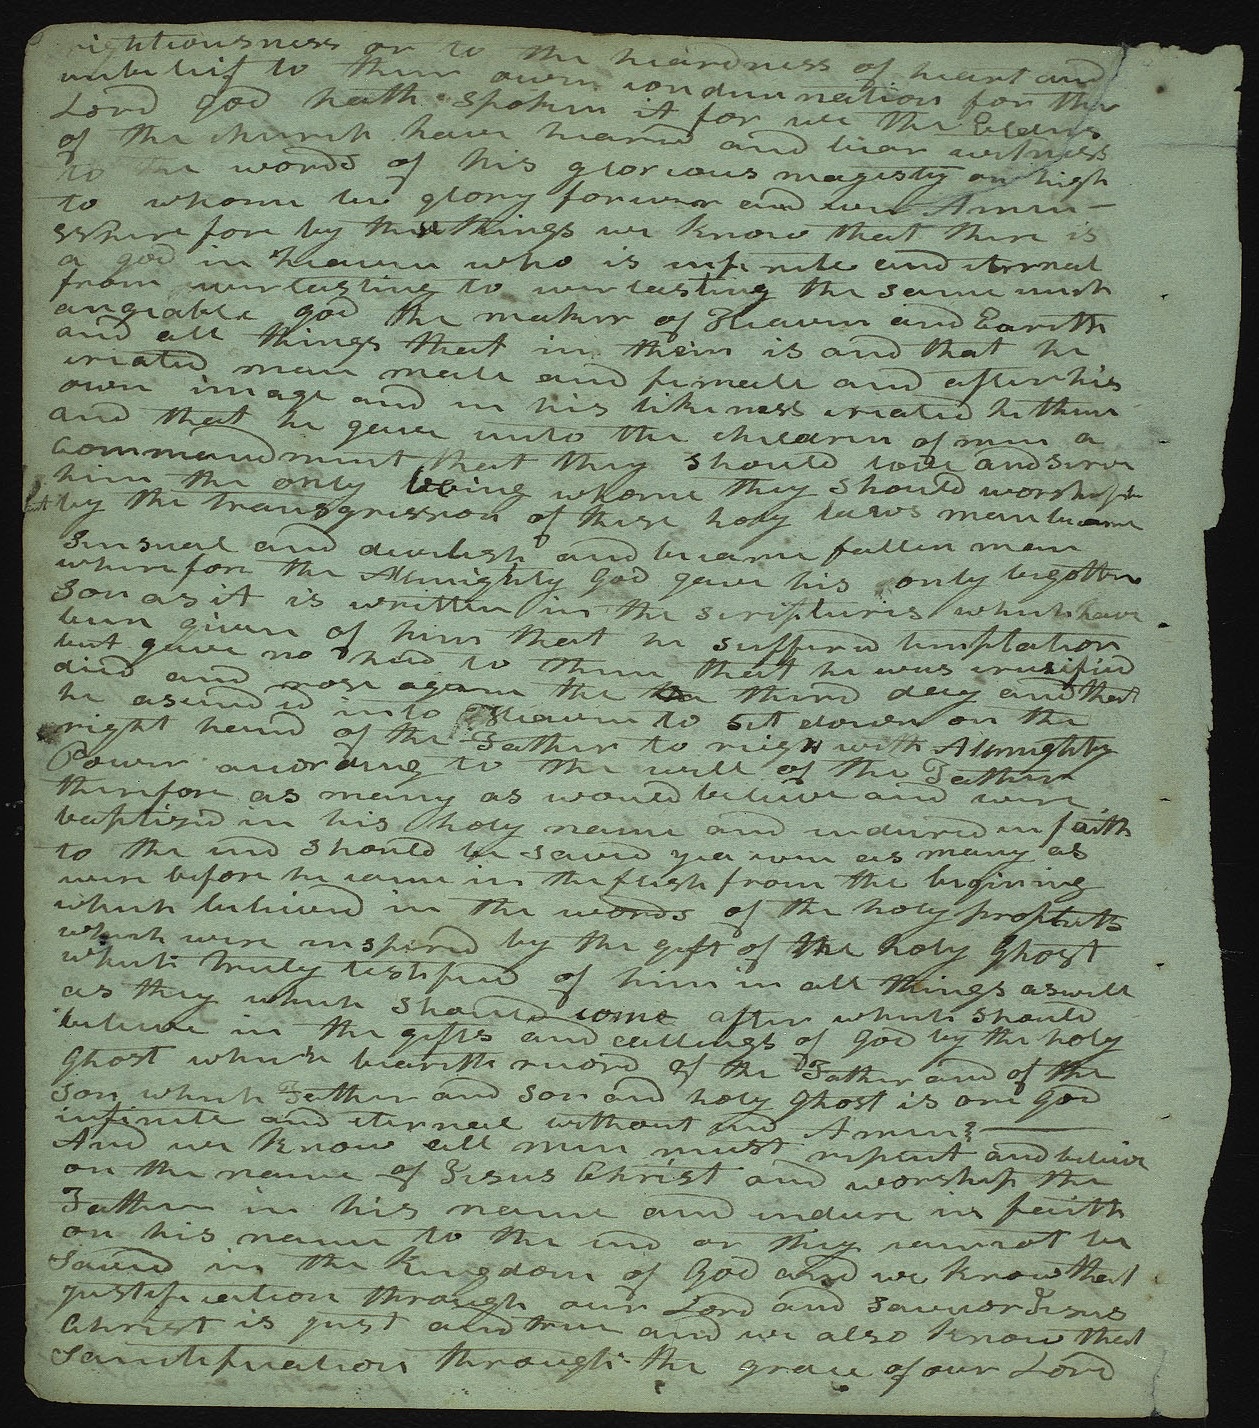 rightiousness or to the heardness of heart and
unbelief to their own condemnation for the
Lord god hath spoken it for we the Elders
of the church have heard and bear witness
to the words of his glorious magisty on high
to whome be glory forever and ever Amen—
Wherefore by these things we know that there is
a god in heaven who is infinite and eternal
from everlasting to everlasting the same unch
angeable god the maker of Heaven and Earth
and all things that in them is and that he
created man male and female and after his
own image and in his likeness created he them
and that he gave unto the children of men a
commandment that they should love and serve
him the only being whome they should worship
but by the transgression of these holy laws man became
sensual and devilish and became fallen man
wherefore the Almighty God gave his only begotten
Son as it is written in the scriptures which have
been given of him that he sufferd temptation
but gave no heed to them that he was crusified
died and rose again the third day and that
he asended into Heaven to sit down on the
right hand of the Father to reign with Almighty
Power according to the will of the Father
therefore as many as would believe and were
baptized in his holy name and endured in faith
to the end should be saved yea even as many as
were before he came in the flesh from the begining
which believed in the words of the holy prophets
which were inspired by the gift of the holy Ghost
which truly testified of him in all things as well
as they which should come after which should
believe in the gifts and callings of God by the holy
Ghost which beareth record of the Father and of the
Son which Father and Son and holy Ghost is one God
infinite and eternal without end Amen
And we know all men must repent and believe
on the name of Jesus Christ and worship the
Father in his name and endure in faith
on his name to the end or they cannot be
Saved in the Kingdom of God and we know that
justification through our Lord and Saviour Jesus
Christ is just and true and we also know that
Santification through the grace of our Lord